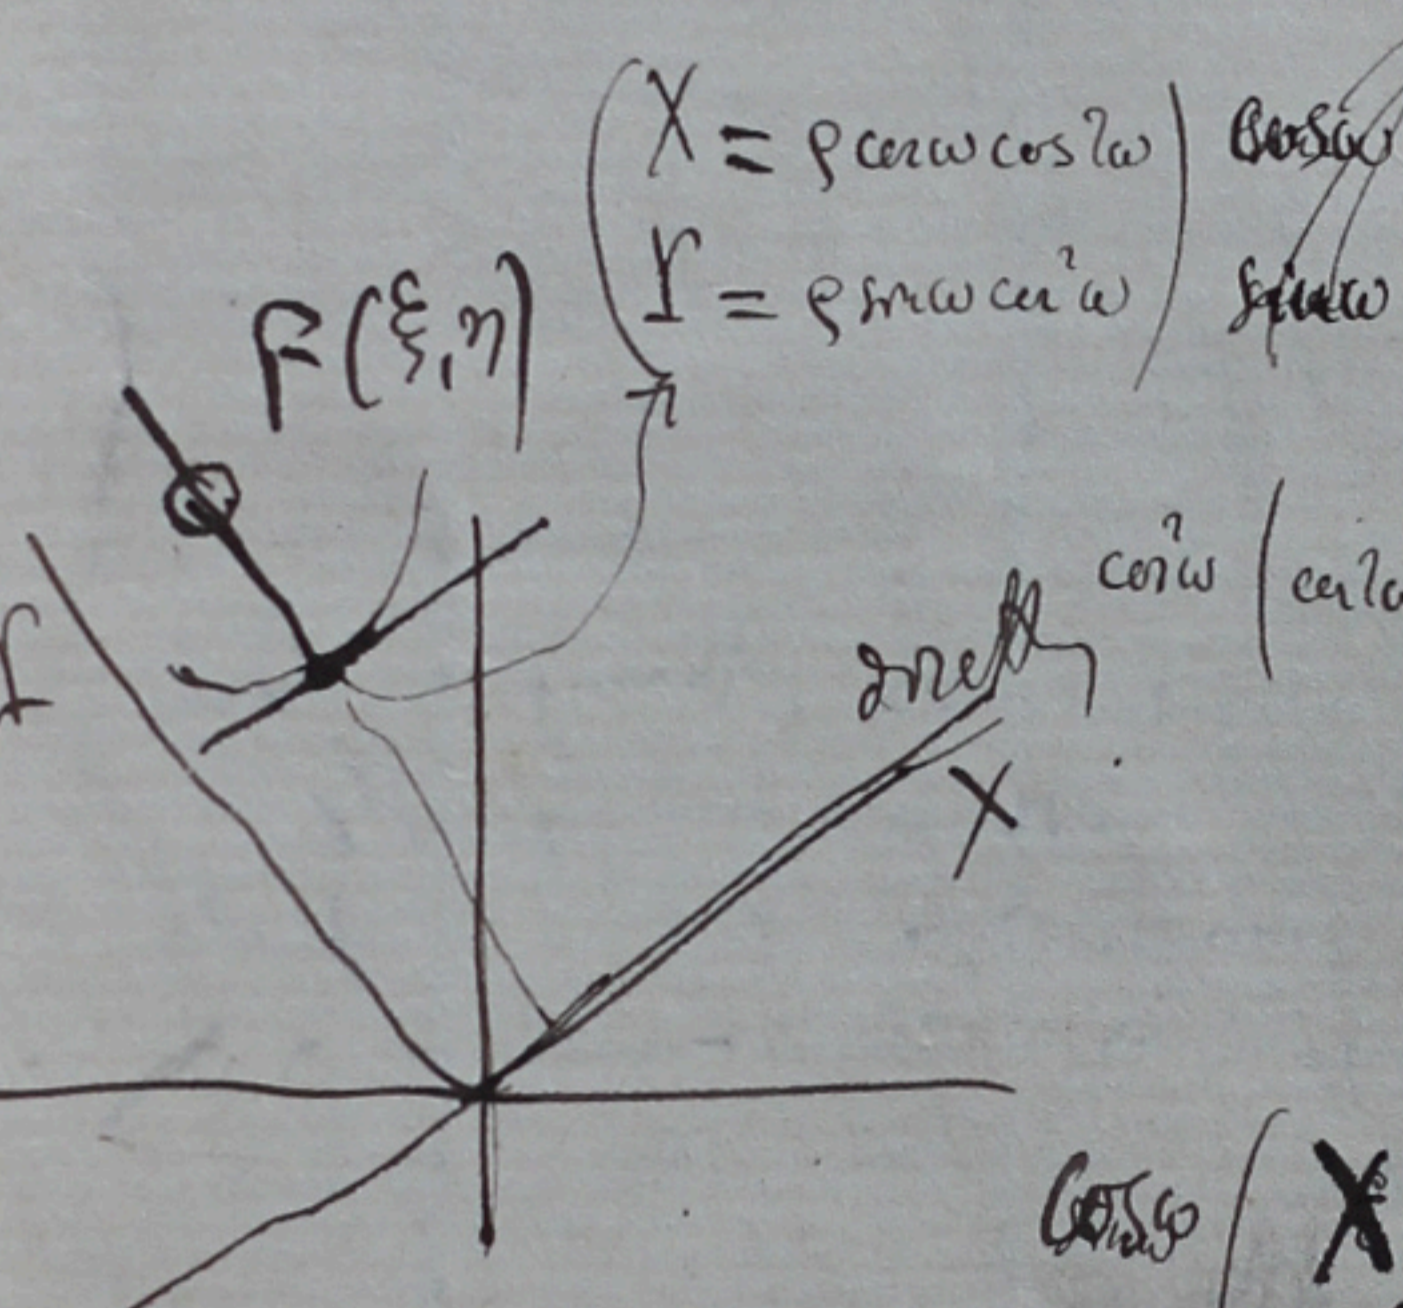 X = ρ cos ω cos 2ω
Y = ρ sin ω cos² ω
cos ω
sin ω
F(ξ, η)
cos² ω
f
X
cos ω
X